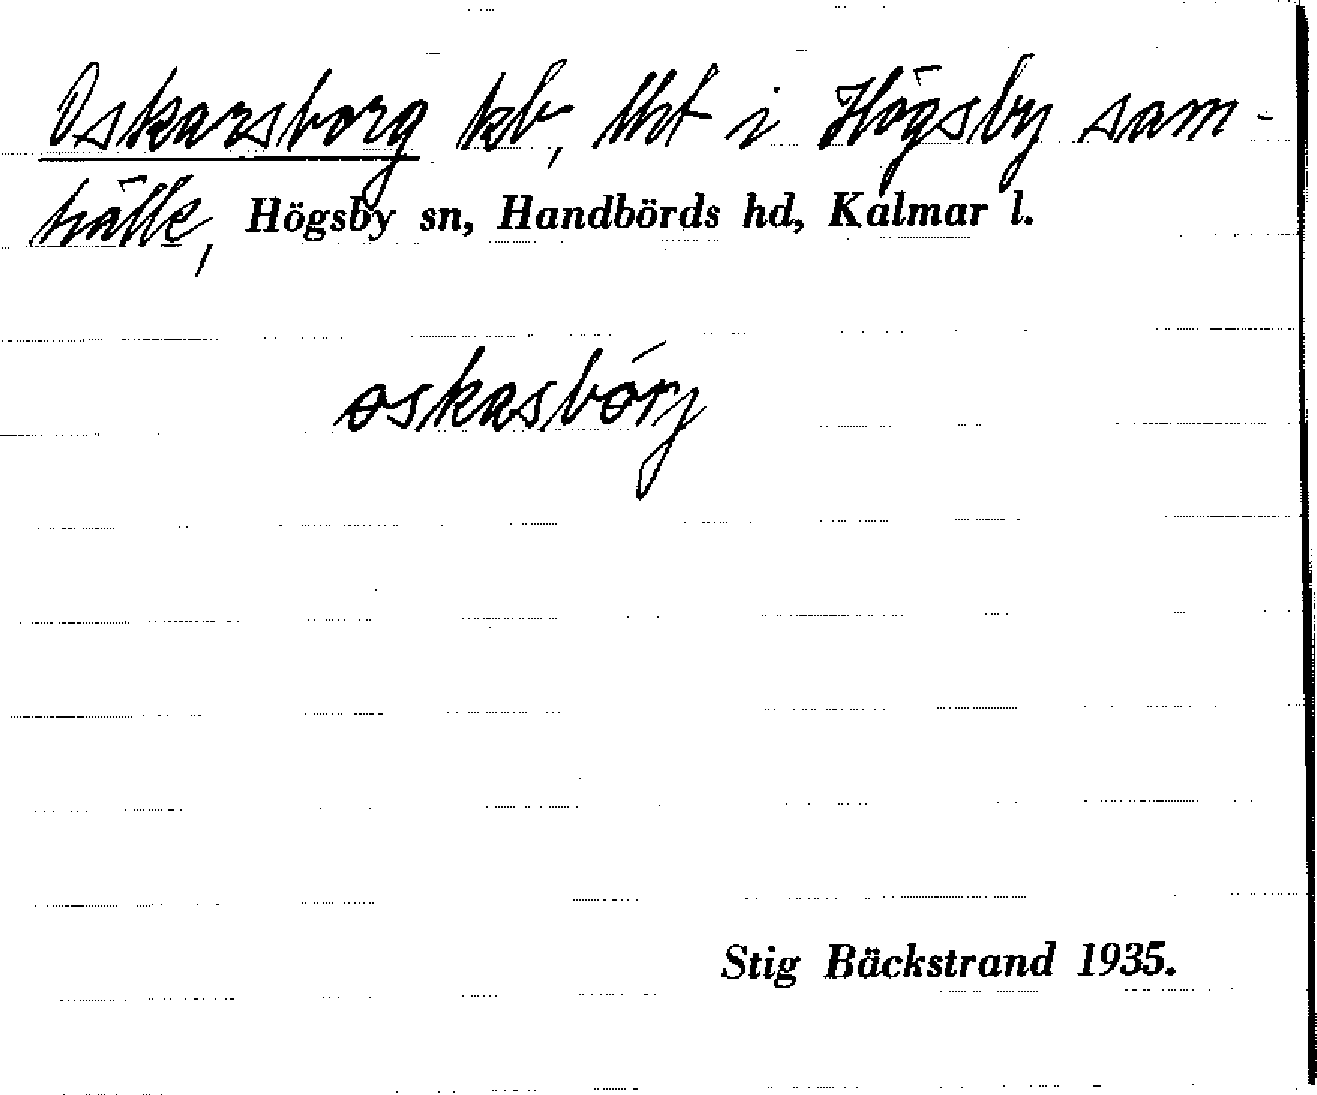 Oskarsborg kb, lht i Högsby sam-
hälle, Högsby sn, Handbörds hd, Kalmar l.
oskasbórj
Stig Bäckstrand 1935.